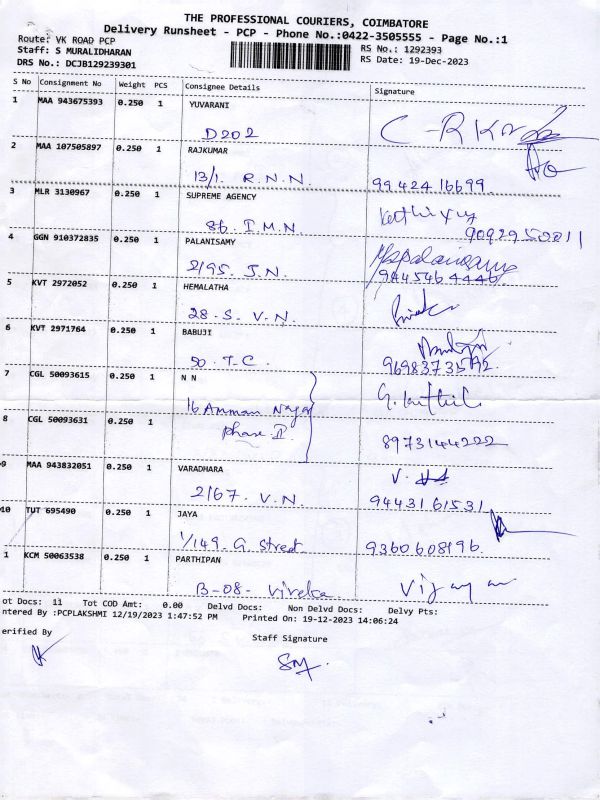 THE PROFESSIONAL COURIERS, COIMBATORE
Delivery Runsheet - PCP - Phone No.:0422-3505555 - Page No.:1
Route: VK ROAD PCP
Staff: S MURALIDHARAN RS No.: 1292393
DRS No.: DCJB129239301 RS Date: 19-Dec-2023
S No Consignment No Weight PCS Consignee Details Signature
1 MAA 943675393 0.250 1 YUVARANI
D202
2 MAA 107505897 0.250 1 RAJKUMAR
13/1. R.N.N. 9942416699
3 MLR 3130967 0.250 1 SUPREME AGENCY
86. I.M.N 9092950811
4 GGN 910372835 0.250 1 PALANISAMY
2/95. J.N. 9445464446
5 KVT 2972052 0.250 1 HEMALATHA
28. S. V.N.
6 KVT 2971764 0.250 1 BABUJI
50. T.C.
7 CGL 50093615 0.250 1 N N
16 Amman Nagar
8 CGL 50093631 0.250 1
Phase II 8973144222
9 MAA 943832051 0.250 1 VARADHARA
2/67. V.N. 9443161531
10 TUT 695490 0.250 1 JAYA
1/149. G. Street 9360608196.
1 KCM 50063538 0.250 1 PARTHIPAN
B-08-
ot Docs: 11 Tot COD Amt: 0.00 Delvd Docs: Non Delvd Docs: Delvy Pts:
ntered By :PCPLAKSHMI 12/19/2023 1:47:52 PM Printed On: 19-12-2023 14:06:24
erified By Staff Signature